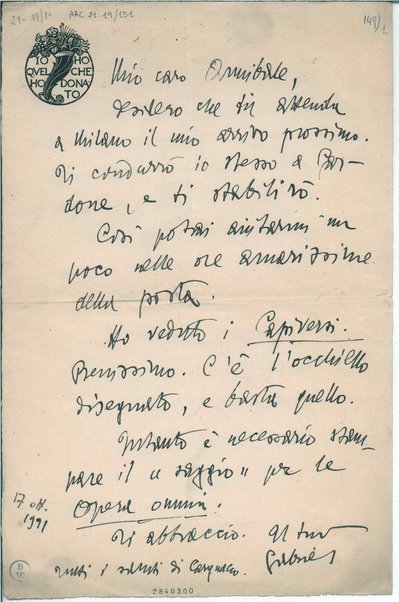 21. 19/10 ARC 21.19/151 149/1
IO HO
QUEL CHE
HO DONA
TO
Mio caro Annibale,
desidero che tu attenda
a Milano il mio arrivo prossimo.
Ti condurrò io stesso a Gar-
done, e ti stabilirò.
Così potrai aiutarmi un
poco nelle ore amarissime
della posta.
Ho veduto i Capiversi.
Benissimo. C'è l'occhiello
disegnato, e basta quello.
Intanto è necessario stam-
pare il «saggio» per le
Opera omnia.
17 ott.
1921
Ti abbraccio. Il tuo
Gabriel
Tutti i saluti di Cargnacco.
BV
2840300